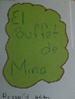 El
Buffet
de
Mina